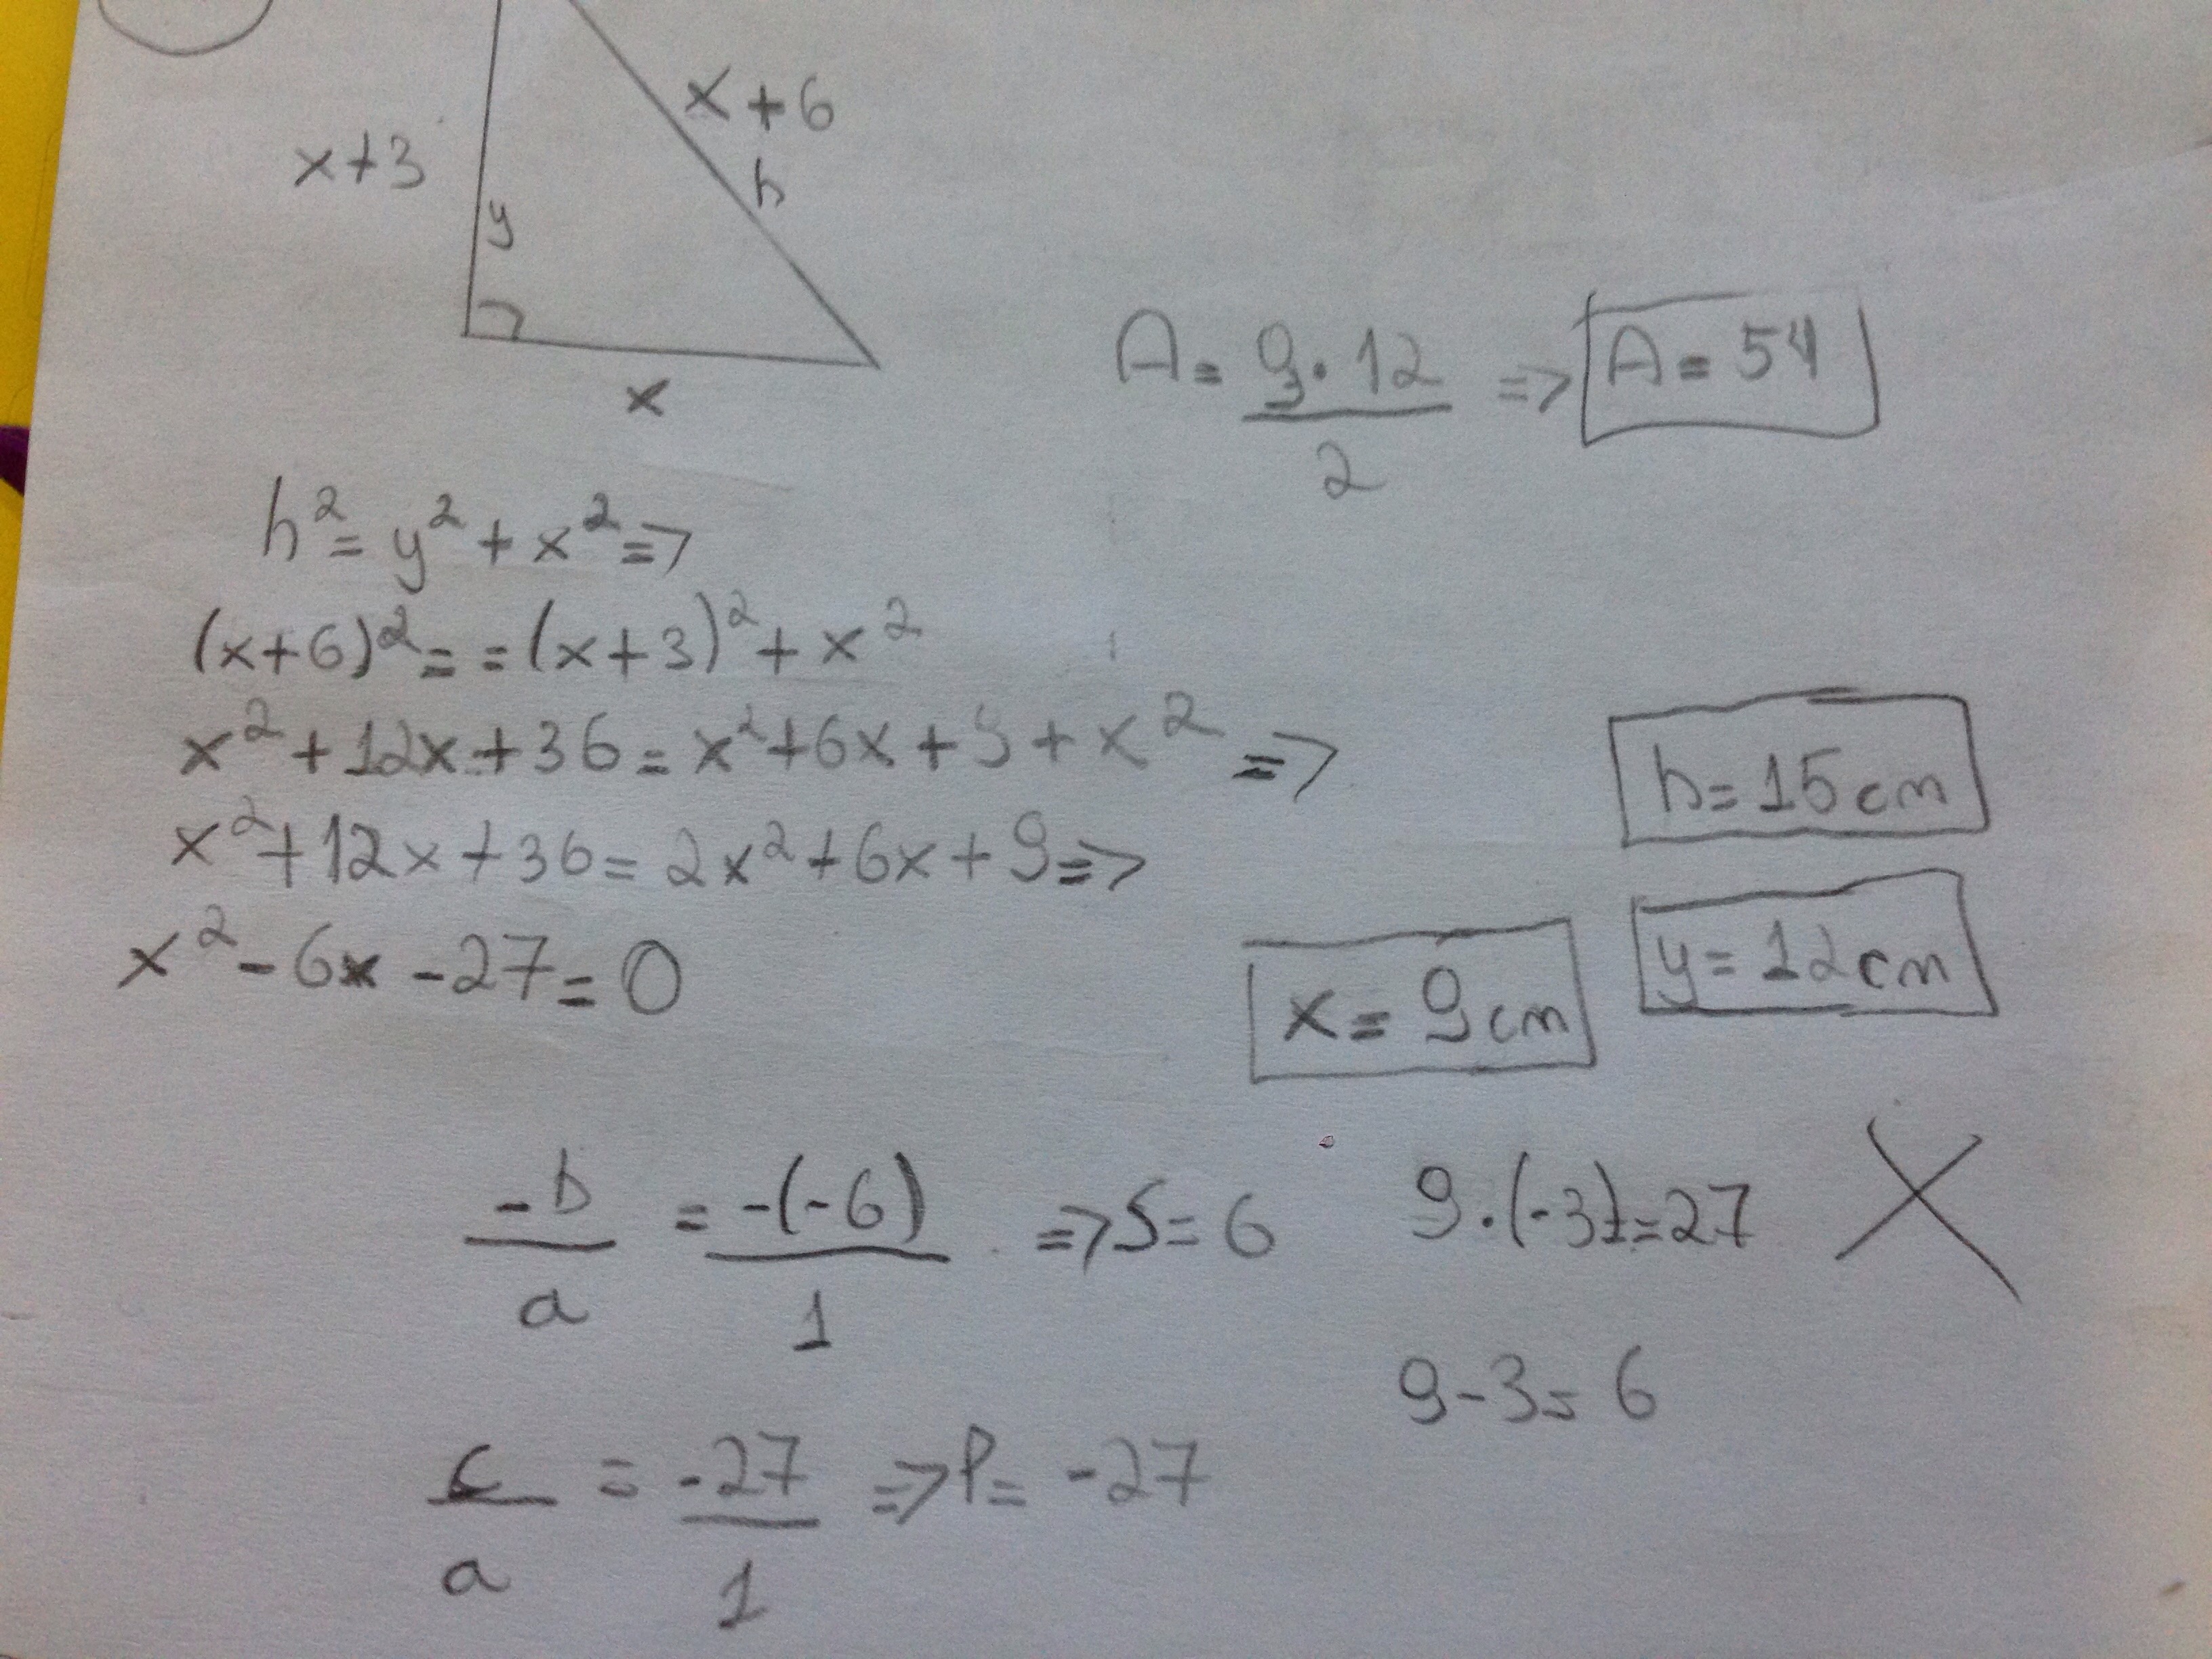 x+3
x+6
h
y
x
A = 9·12/2 => A = 54
h² = y² + x² =>
(x+6)² = = (x+3)² + x²
x² + 12x + 36 = x² + 6x + 9 + x² =>
x² + 12x + 36 = 2x² + 6x + 9 =>
x² - 6x - 27 = 0
h = 15 cm
y = 12 cm
x = 9 cm
-b/a = -(-6)/1 => S = 6
9·(-3) = 27
9 - 3 = 6
c/a = -27/1 => P = -27